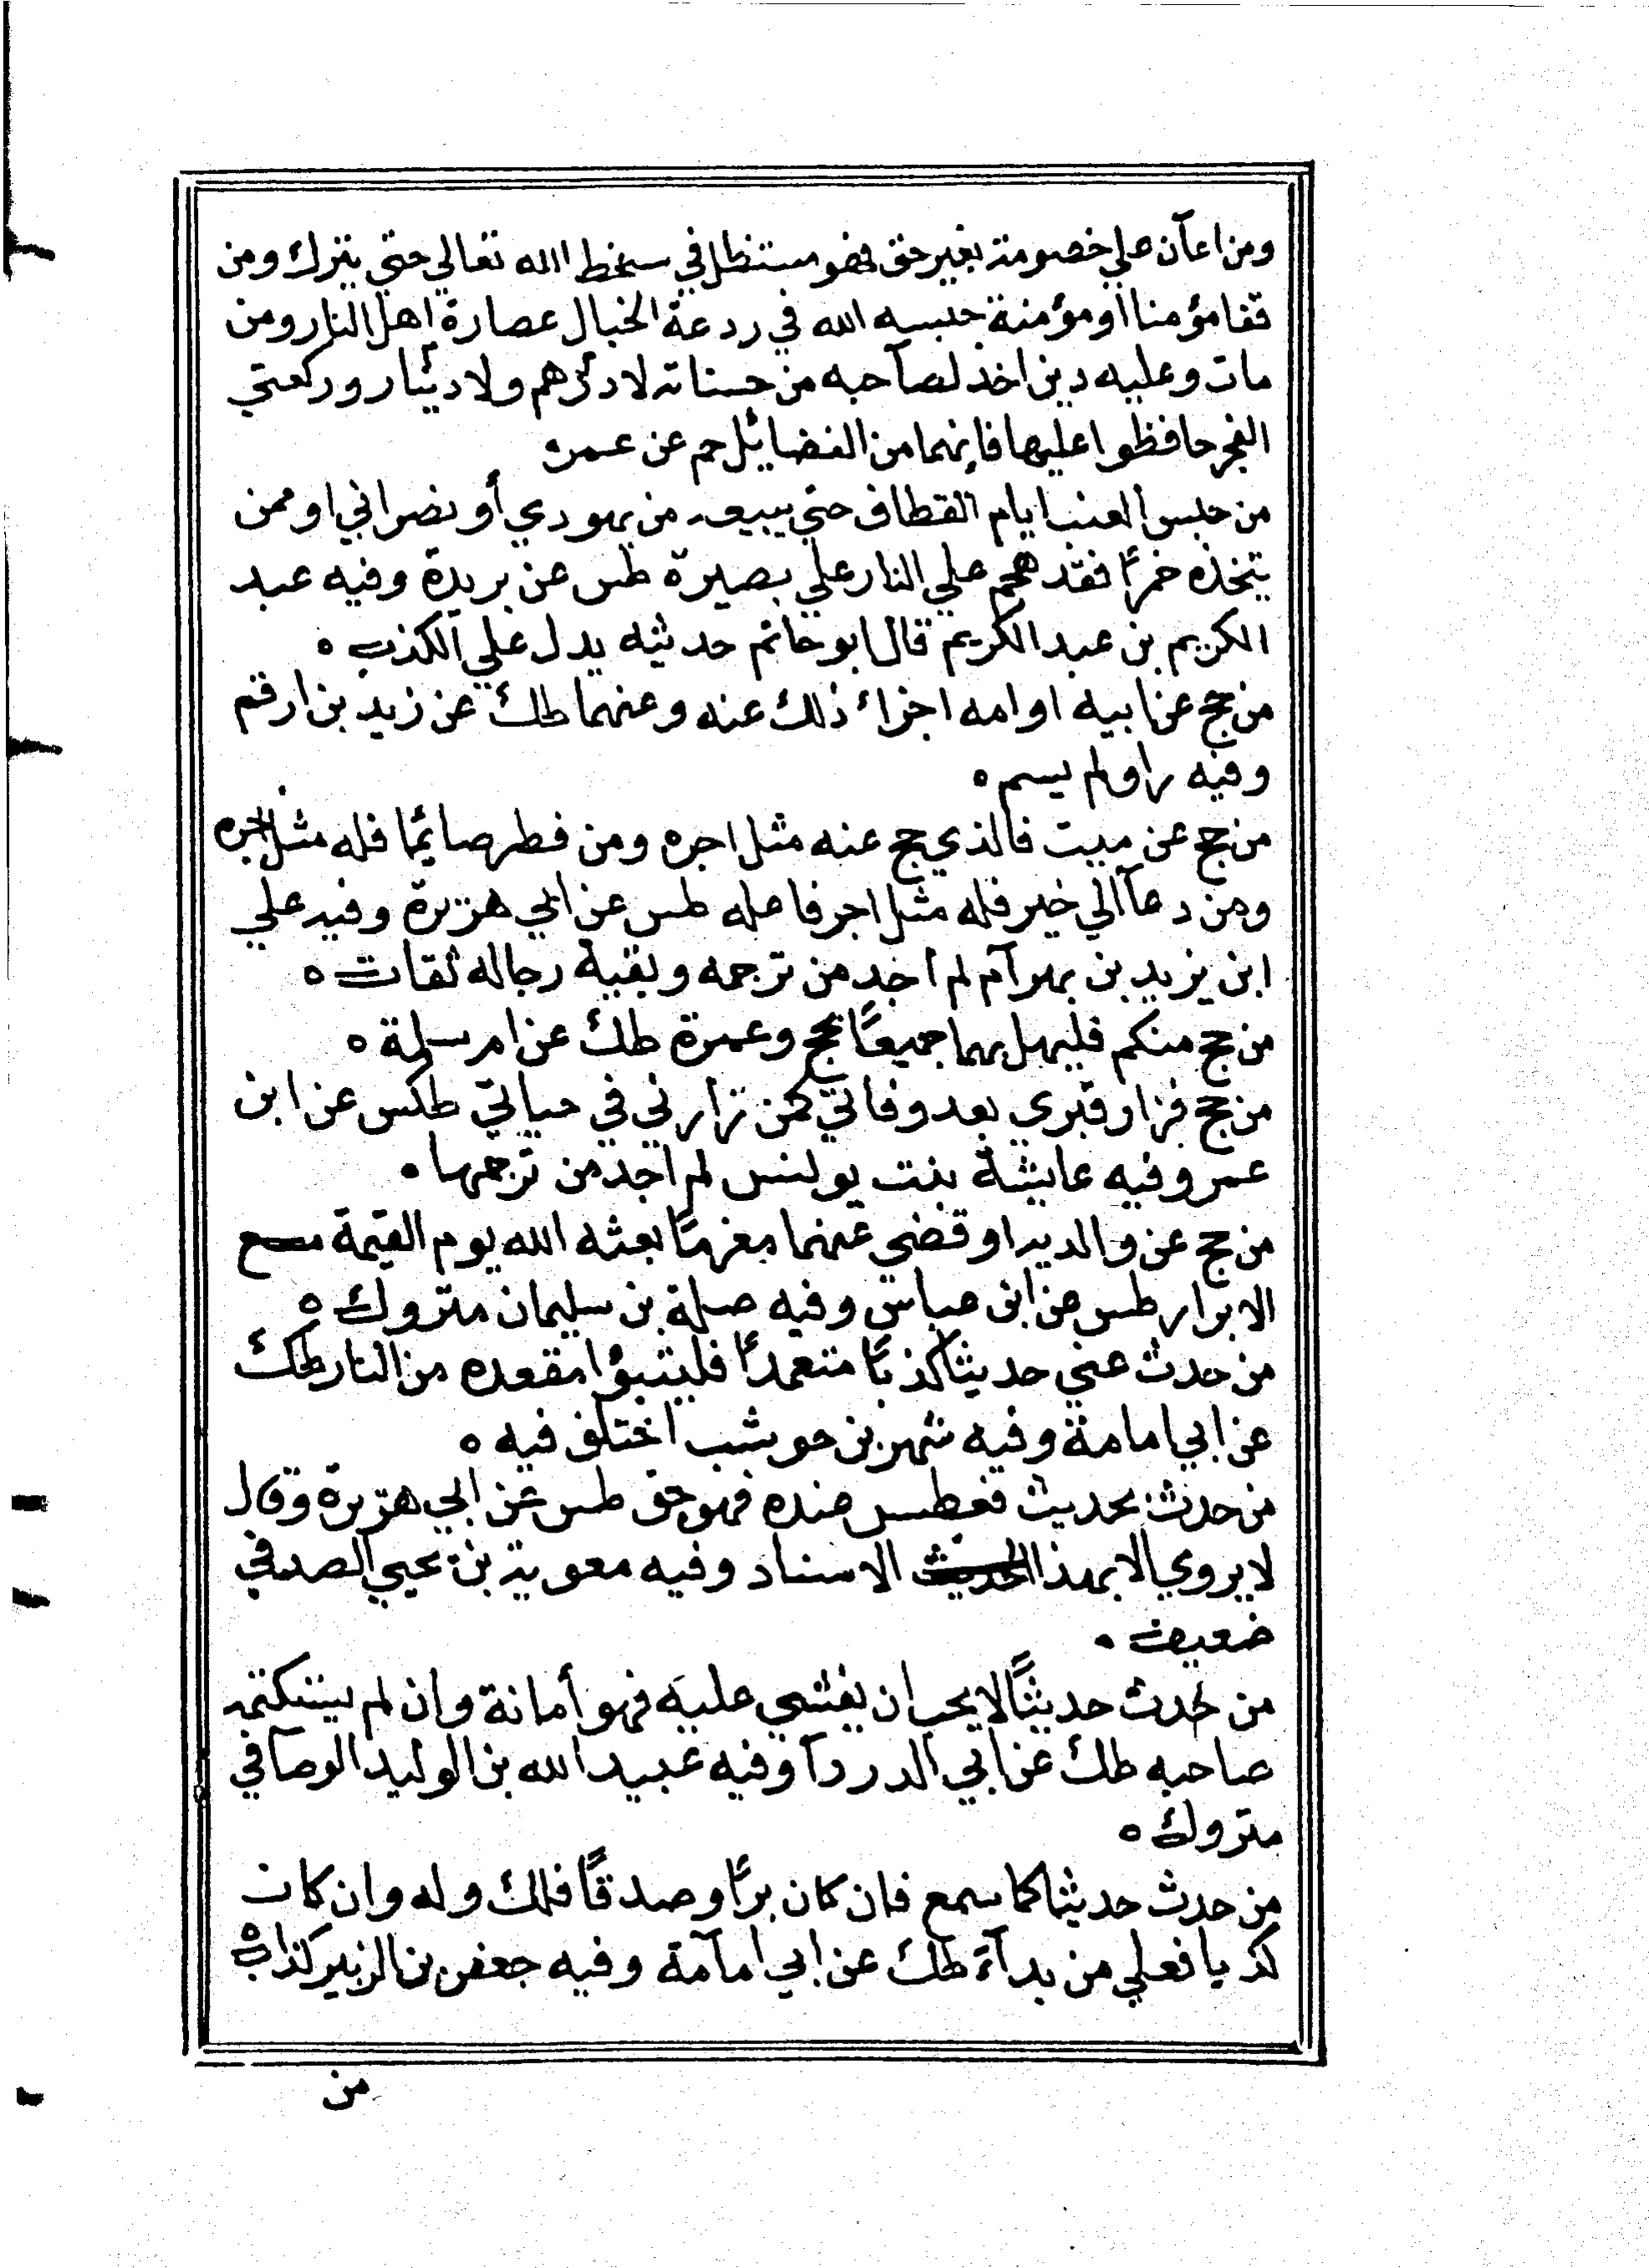 ومن اعآن علي خصومة بغير حق فهو مستظل في سخط الله تعالي حتي يترك ومن
قفا مؤمنا او مؤمنة حبسه الله في ردعة الخبال عصارة اهل النار ومن
مات وعليه دين اخذ لصآحبه من حسناته لا درهم ولا دينار وركعتي
الفجر حافظوا عليها فانهما من الفضايل حم عن عمر
من حبس العنب ايام القطاف حتي يبيعه من يهودي أو نصراني او ممن
يتخذه خمرًا فقد هجم علي النار علي بصيرة طس عن بريدة وفيه عبد
الكريم بن عبد الكريم قال ابو حاتم حديثه يدل علي الكذب ه
من حج عن ابيه او امه اجزاء ذلك عنه وعنهما طك عن زيد بن ارقم
وفيه راو لم يسم ه
من حج عن ميت فالذي حج عنه مثل اجره ومن فطر صايمًا فله مثل اجره
ومن دعآ الي خير فله مثل اجر فاعله طس عن ابي هريرة وفيه علي
ابن يزيد بن بهرآم لم أجد من ترجمه وبقية رجاله ثقات ه
من حج منكم فليهل بهما جميعًا بحج وعمرة طك عن ام سلمة ه
من حج فزار قبري بعد وفاتي كمن زارني في حياتي طكس عن ابن
عمر وفيه عايشة بنت يونس لم اجد من ترجمها ه
من حج عن والديه او قضي عنهما مغرمًا بعثه الله يوم القيمة مع
الابرار طس عن ابن عباس وفيه صلة بن سليمان متروك ه
من حدث عني حديثا كذبًا متعمدًا فليتبؤا مقعده من النار طك
عن ابي امامة وفيه شهر بن حوشب اختلف فيه ه
من حدث بحديث فعطس عنده فهو حق طس عن ابي هريرة وقال
لا يروي الا بهذا الحديث الاسناد وفيه معوية بن يحيي الصدفي
ضعيف ه
من حدث حديثًا لا يحب ان يفشي عليه فهو أمانة وان لم يستكتمه
صاحبه طك عن ابي الدردآ وفيه عبيد الله بن الوليد الوصآفي
متروك ه
من حدث حديثا كما سمع فان كان برًا وصدقًا فلك وله وان كان
كذبا فعلي من بدآه طك عن ابي امآمة وفيه جعفر بن الزبير كذاب ه
من